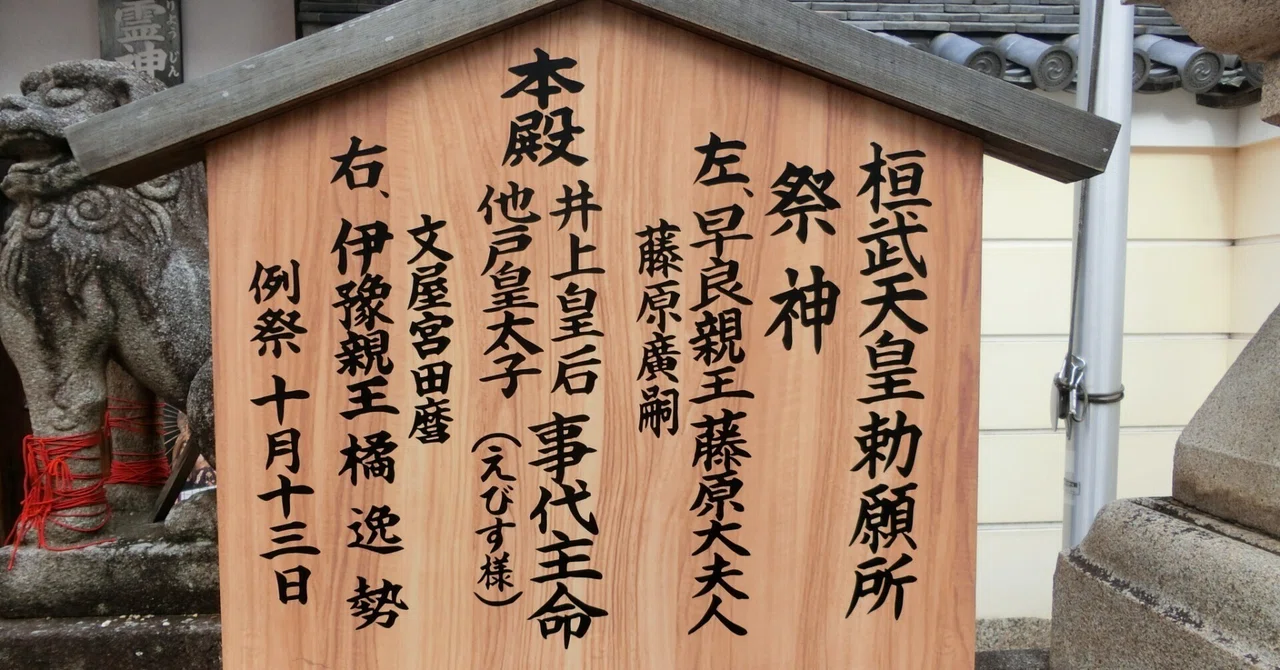 桓武天皇勅願所
祭神
左、早良親王藤原大夫人
藤原廣嗣
本殿
井上皇后 事代主命
他戸皇太子 (えびす様)
文屋宮田麿
右、伊豫親王 橘逸勢
例祭 十月十三日
霊神
りょうじん